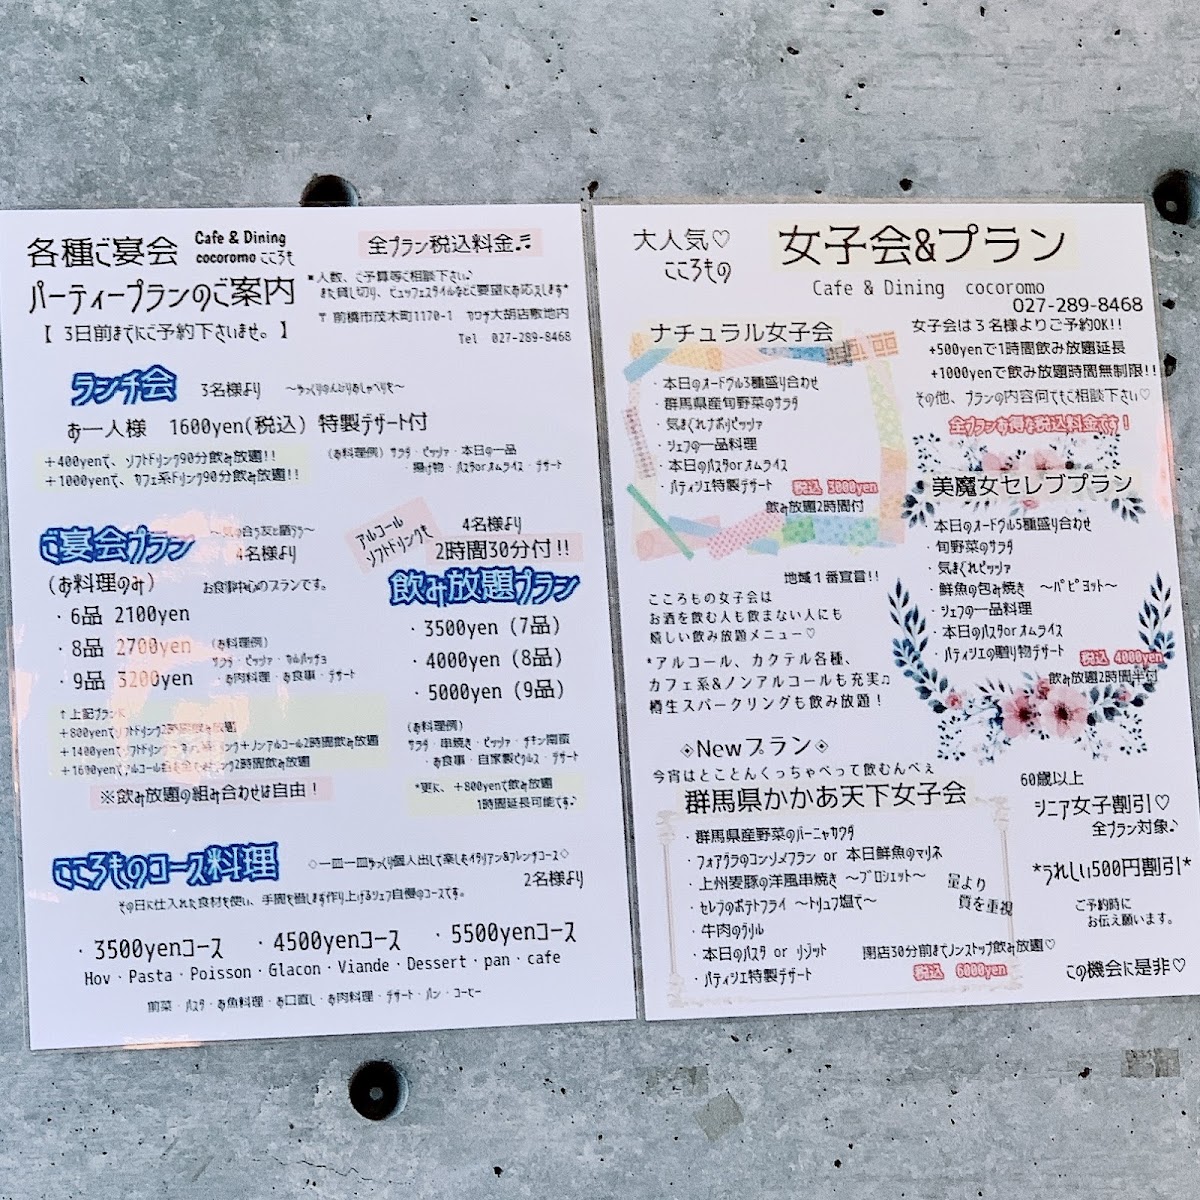 各種ご宴会
Cafe & Dining
cocoromo こころも
全プラン税込料金♬
パーティープランのご案内
*人数、ご予算等ご相談下さい♪
また貸し切り、ビュッフェスタイルなどご要望にお応えします*
【 3日前までにご予約下さいませ。 】
〒 前橋市茂木町1170-1 カワチ大胡店敷地内
Tel 027-289-8468
ランチ会 3名様より ～ゆっくりのんびりおしゃべりを～
お一人様 1600yen(税込) 特製デザート付
+400yenで、ソフトドリンク90分飲み放題!!
+1000yenで、カフェ系ドリンク90分飲み放題!!
(お料理例) サラダ・ピッツァ・本日の一品
・揚げ物・パスタorオムライス・デザート
ご宴会プラン
～気の合う友と語らう～
4名様より
(お料理のみ) お食事中心のプランです。
・6品 2100yen
・8品 2700yen
・9品 3200yen
(お料理例)
サラダ・ピッツァ・カルパッチョ
・お肉料理・お食事・デザート
↑上記プランに
+800yenでソフトドリンク2時間飲み放題
+1400yenでソフトドリンク・カフェ系ドリンク+ノンアルコール2時間飲み放題
+1600yenでアルコール含む全てのドリンク2時間飲み放題
※飲み放題の組み合わせは自由！
アルコール
ソフトドリンクも
4名様より
2時間30分付!!
飲み放題プラン
・3500yen (7品)
・4000yen (8品)
・5000yen (9品)
(お料理例)
サラダ・串焼き・ピッツァ・チキン南蛮
・お食事・自家製ピクルス・デザート
*更に、+800yenで飲み放題
1時間延長可能です♪
こころものコース料理
◇一皿一皿ゆっくり個人出しで楽しむイタリアン&フレンチコース◇
2名様より
その日に仕入れた食材を使い、手間を惜しまず作り上げるシェフ自慢のコースです。
・3500yenコース ・4500yenコース ・5500yenコース
Hov・Pasta・Poisson・Glacon・Viande・Dessert・pan・cafe
前菜・パスタ・お魚料理・お口直し・お肉料理・デザート・パン・コーヒー
大人気♡
こころもの
女子会&プラン
Cafe & Dining cocoromo
027-289-8468
ナチュラル女子会
・本日のオードヴル3種盛り合わせ
・群馬県産旬野菜のサラダ
・気まぐれナポリピッツァ
・シェフの一品料理
・本日のパスタorオムライス
・パティシエ特製デザート 税込 3000yen
飲み放題2時間付
女子会は３名様よりご予約OK!!
+500yenで1時間飲み放題延長
+1000yenで飲み放題時間無制限!!
その他、プランの内容何でもご相談下さい♡
全プランお得な税込料金です！
美魔女セレブプラン
・本日のオードヴル5種盛り合わせ
・旬野菜のサラダ
・気まぐれピッツァ
・鮮魚の包み焼き ～パピヨット～
・シェフの一品料理
・本日のパスタorオムライス
・パティシエの贈り物デザート
税込 4000yen
飲み放題2時間半付
地域１番宣言!!
こころもの女子会は
お酒を飲む人も飲まない人にも
嬉しい飲み放題メニュー♡
*アルコール、カクテル各種、
カフェ系&ノンアルコールも充実♫
樽生スパークリングも飲み放題！
◈Newプラン◈
今宵はとことんくっちゃべって飲むんべぇ
群馬県かかあ天下女子会
・群馬県産野菜のバーニャカウダ
・フォアグラのコンソメフラン or 本日鮮魚のマリネ
・上州麦豚の洋風串焼き ～ブロシェット～
・セレブのポテトフライ ～トリュフ塩で～
・牛肉のグリル
・本日のパスタ or リゾット
・パティシエ特製デザート
量より
質を重視
閉店30分前までノンストップ飲み放題♡
税込 6000yen
60歳以上
シニア女子割引♡
全プラン対象♪
*うれしい500円割引*
ご予約時に
お伝え願います。
この機会に是非♡